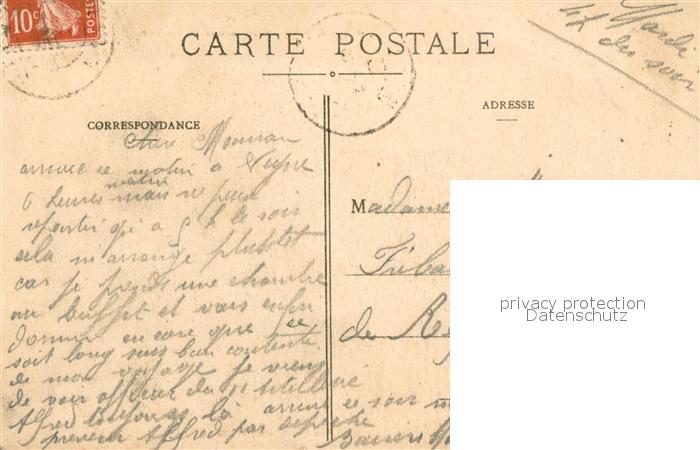 10c
POSTES
CARTE POSTALE
Mardi
4h du soir
CORRESPONDANCE
ADRESSE
Chère Maman
arrivée ce matin à
6 heures matin mais ne peux
repartir qu'à 5 h le soir
cela m'arrange plutôt
car je prends une chambre
au buffet et vais enfin
dormir encore que ce
soit long suis bien contente
de mon voyage je viens
de voir officier du
Alfred toujours là arrive ce soir
prévenir Alfred par dépêche
Baisers
Madame
de
privacy protection
Datenschutz